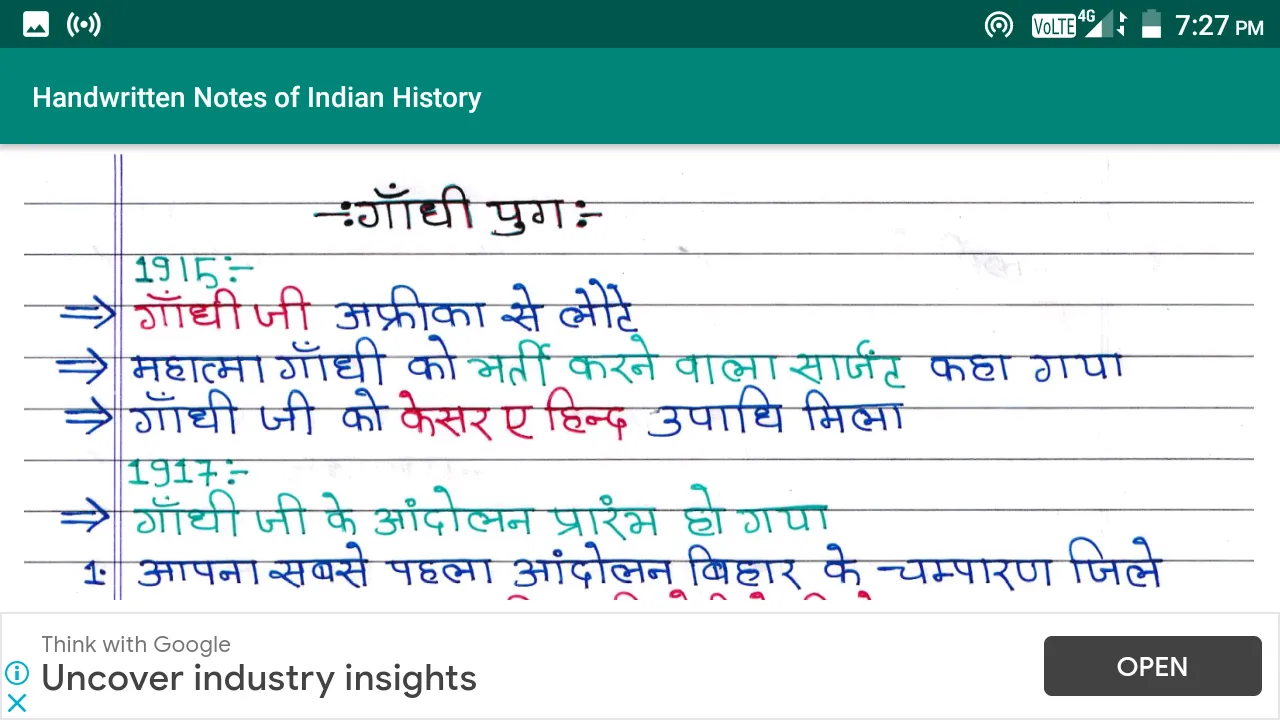 VoLTE 4G 7:27 PM
Handwritten Notes of Indian History
-:गाँधी युग:-
1915:-
⇒ गाँधी जी अफ्रीका से लौटे
⇒ महात्मा गाँधी को भर्ती करने वाला सार्जंट कहा गया
⇒ गाँधी जी को केसर ए हिन्द उपाधि मिला
1917:-
⇒ गाँधी जी के आंदोलन प्रारंभ हो गया
1. आपना सबसे पहला आंदोलन बिहार के चम्पारण जिले
Think with Google
Uncover industry insights
OPEN